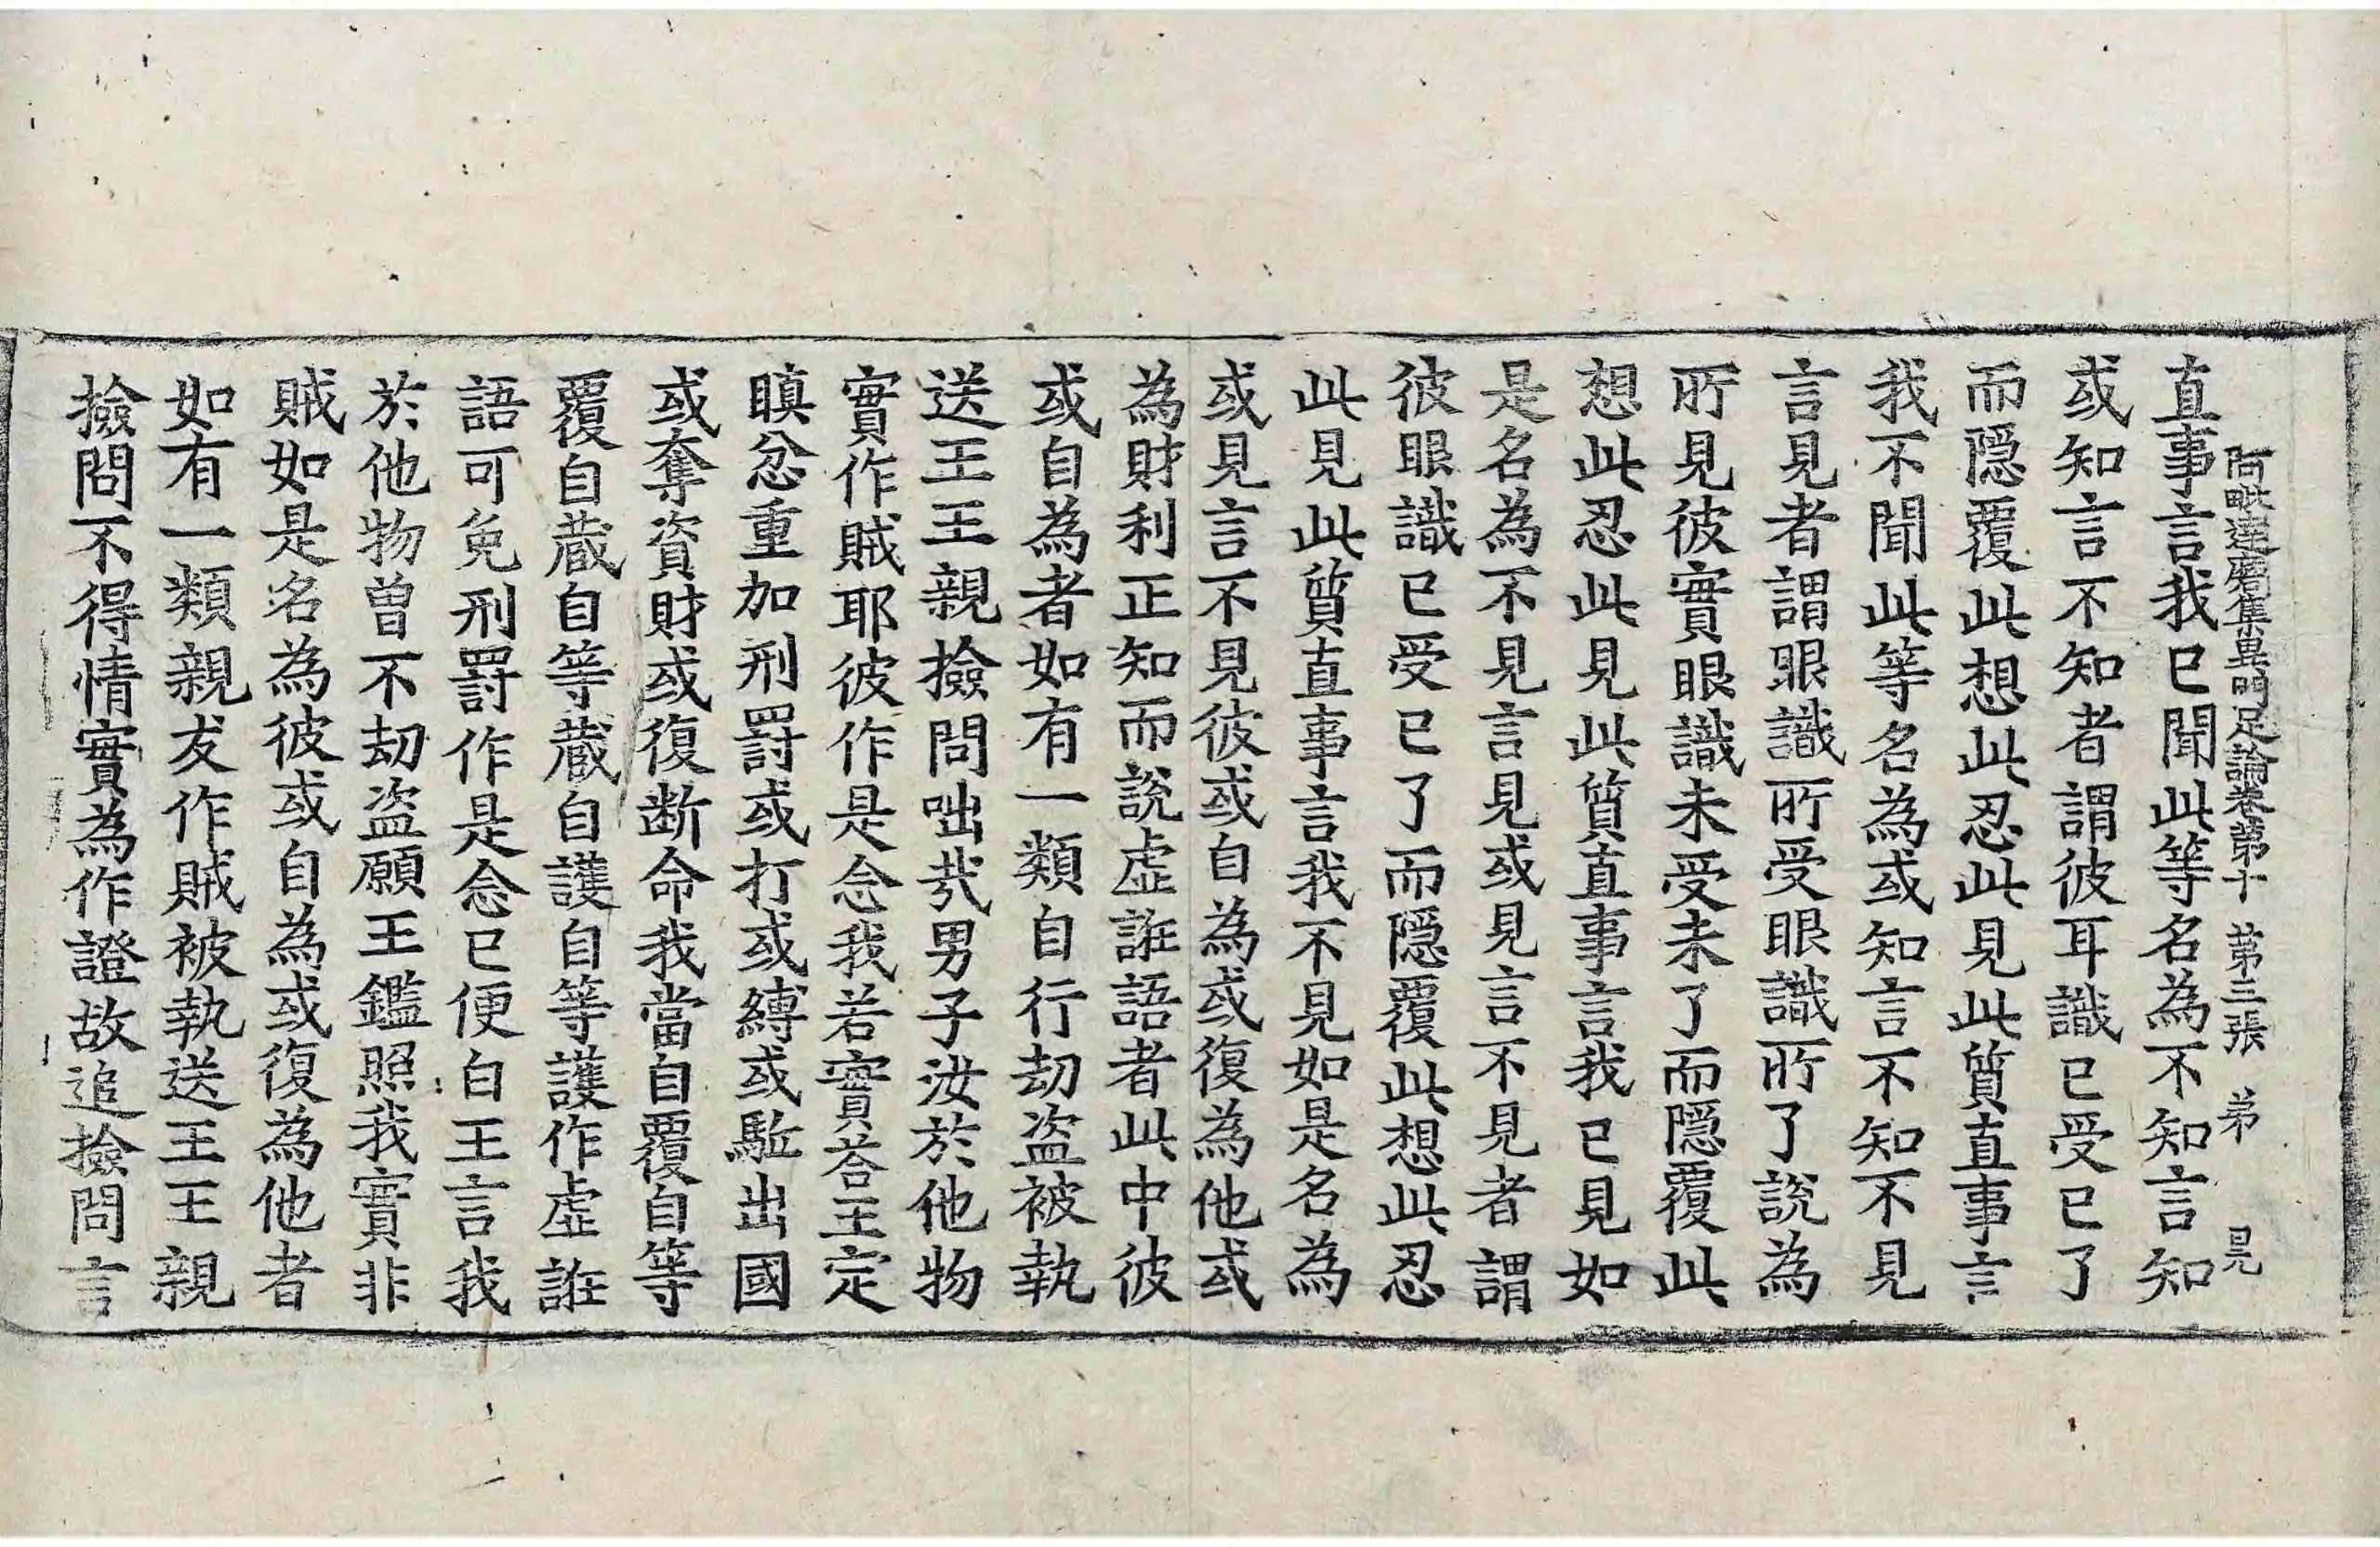 阿毗達磨集異門足論卷第十 第三張 弟 㫤
直事言我已聞此等名為不知言知
或知言不知者謂彼耳識已受已了
而隱覆此想此忍此見此質直事言
我不聞此等名為或知言不知不見
言見者謂眼識所受眼識所了說為
所見彼實眼識未受未了而隱覆此
想此忍此見此質直事言我已見如
是名為不見言見或見言不見者謂
彼眼識已受已了而隱覆此想此忍
此見此質直事言我不見如是名為
或見言不見彼或自為或復為他或
為財利正知而說虛誑語者此中彼
或自為者如有一類自行劫盜被執
送王王親撿問咄㢤男子汝於他物
實作賊耶彼作是念我若實荅王定
瞋忿重加刑罰或打或縛或駈出國
或奪資財或復斷命我當自覆自等
覆自蔵自等蔵自護自等護作虛誑
語可免刑罰作是念已便白王言我
於他物曽不劫盜願王鑑照我實非
賊如是名為彼或自為或復為他者
如有一類親友作賊被執送王王親
撿問不得情實為作證故追撿問言